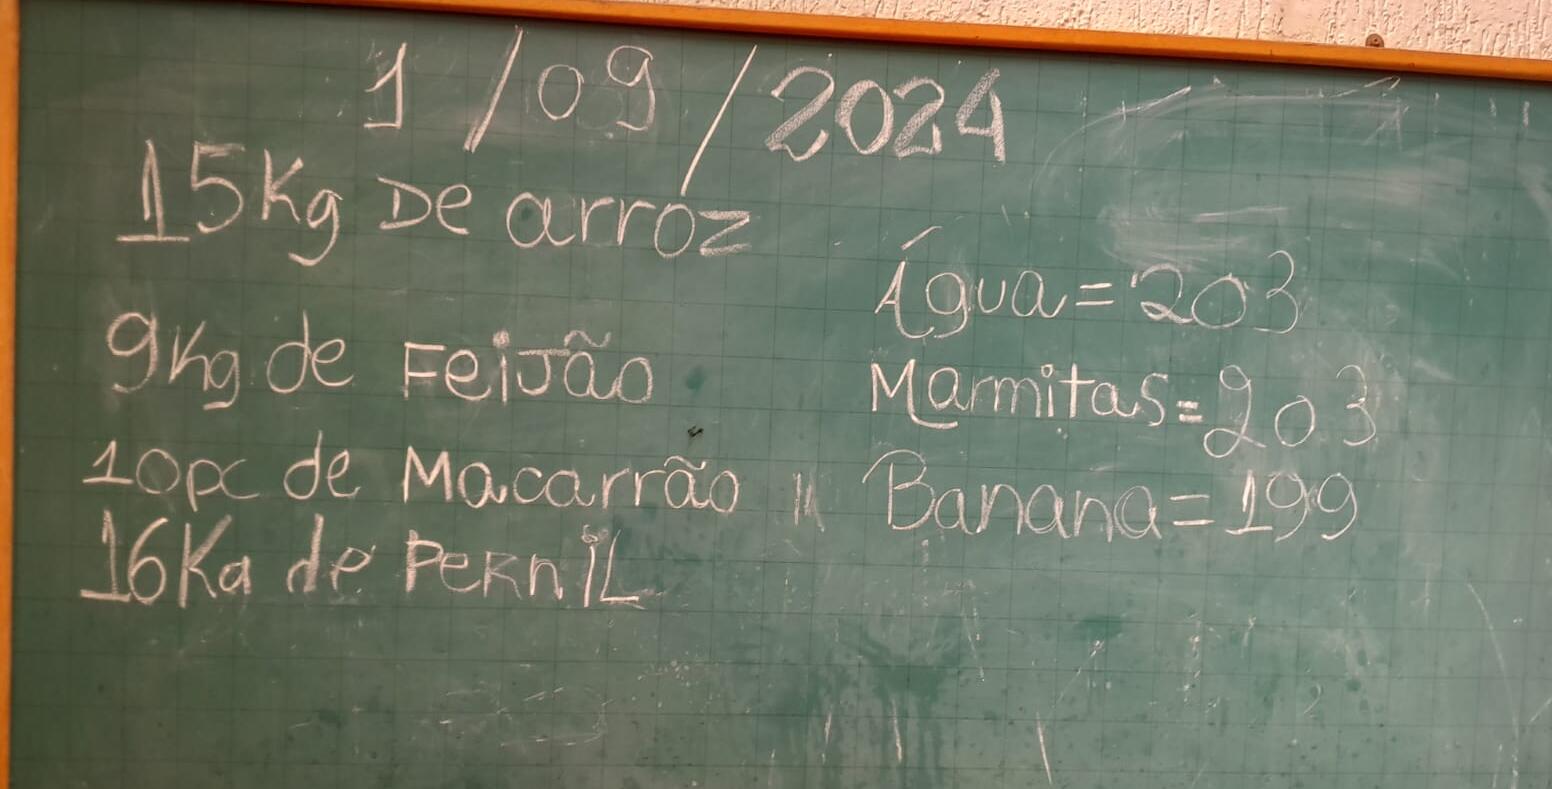 1/09/2024
15Kg De arroz
9Kg de Feijão
10pc de Macarrão
16Kg de Pernil
Água=203
Marmitas=203
Banana=199